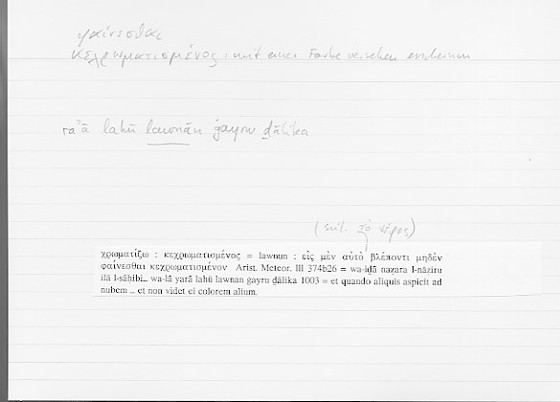 φαίνεσθαι
κεχρωματισμένος : mit einer Farbe versehen erscheinen
raʾā lahū lawnan ġayru ḏālika
(scil. τὸ νέφος)
χρωματίζω : κεχρωματισμένος = lawnun : εἰς μὲν αὐτὸ βλέποντι μηδὲν
φαίνεσθαι κεχρωματισμένον Arist. Meteor. III 374b26 = wa-iḏā naẓara l-nāẓiru
ilā l-sāḥibi... wa-lā yarā lahū lawnan ġayru ḏālika 1003 = et quando aliquis aspicit ad
nubem ... et non videt ei colorem alium.